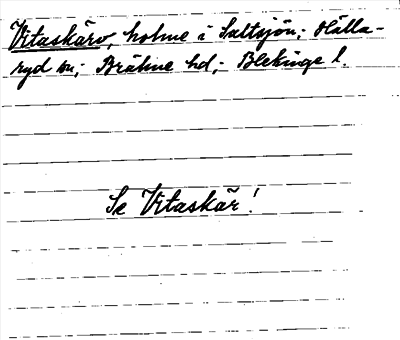 Vitaskärv, holme i Saltsjön; Hälla-
ryd sn; Bräkne hd; Blekinge l.
Se Vitaskär!